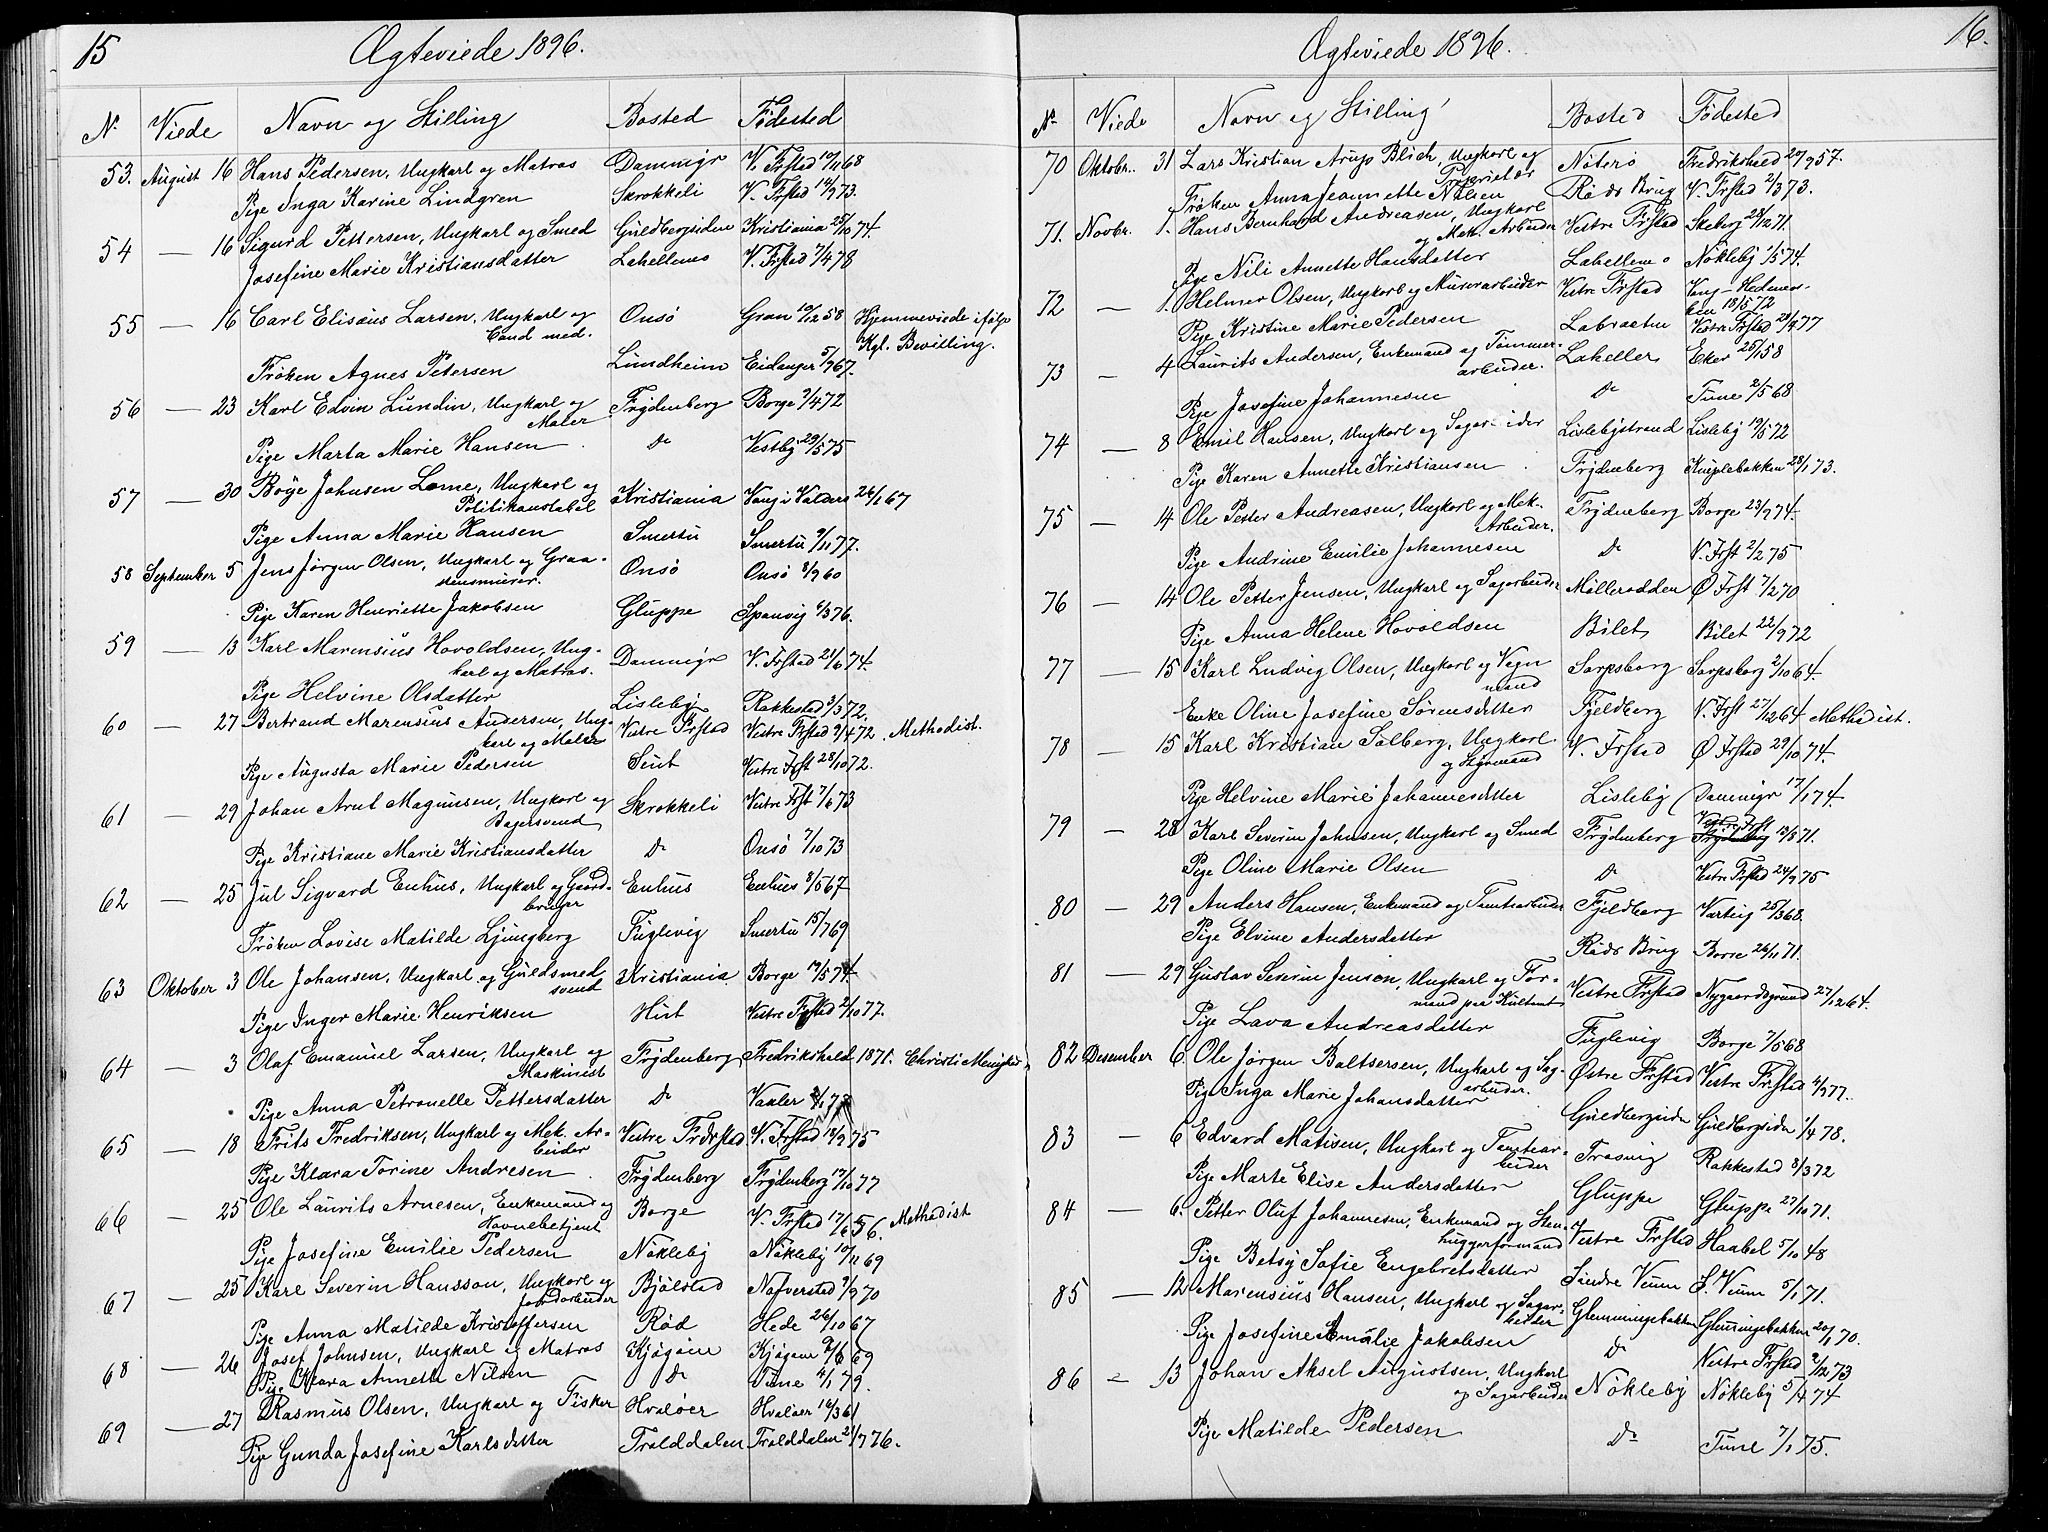 15 Ægteviede 1896.
No Viede Navn og Stilling Bosted Födested
53. August 16 Hans Pedersen, Ungkarl og Matros Dammigr V. Frstad 10/11 68
Pige Inga Karine Lindgren Skrokkeli V. Frstad 14/9 73.
54 — 16 Sigurd Pettersen, Ungkarl og Smed Guldbergsiden Kristiania 25/10 74.
Josefine Marie Kristiansdatter Lahellemo V. Frstad 7/4 78
55 — 16 Carl Elisæus Larsen, Ungkarl og Onsö Gran 10/12 58 Hjemmeviede ifölge
Cand med. Kgl. Bevilling.
Fröken Agnes Petersen Lundheim Eidanger 5/9 67.
56 — 23 Karl Edvin Lundin, Ungkarl og Frydenberg Borge 2/4 72
Maler
Pige Marta Marie Hansen Do Vestby 29/5 75
57 — 30 Böye Johnsen Lome, Ungkarl og Kristiania Vang i Valders 26/1 67
Politikonstabel
Pige Anna Marie Hansen Smertu Smertu 9/11 77.
58 September 5 Jens Jörgen Olsen, Ungkarl og Graa- Onsö Onsö 8/9 60
stensmurer.
Pige Karen Henriette Jakobsen Gluppe Spanvig 6/3 76.
59 — 13 Karl Marensius Hovoldsen, Ung- Dammigr V. Frstad 21/6 74.
karl og Matros.
Pige Helvine Olsdatter Lisleby Rakkestad 3/3 72.
60 — 27 Bertrand Marensius Andersen, Ung- Vestre Frstad Vestre Frstad 9/4 72. Methodist.
karl og Maler
Pige Augusta Marie Pedersen Seut Vestre Frst 28/10 72.
61 — 29 Johan Arnt Magnusen, Ungkarl og Skrokkeli Vestre Frst 7/6 73
Bagersvend
Pige Kristiane Marie Kristiansdatter Do Onsö 7/10 73
62 — 25 Jul Sigvard Enhus, Ungkarl og Gaard- Enhus Enhus 8/5 67
bruger
Fröken Lovise Matilde Ljungberg Fuglevig Smertu 15/7 69
63 Oktober 3 Ole Johansen, Ungkarl og Guldsmed Kristiania Borge 19/5 74.
svend
Pige Inger Marie Henriksen Hut Vestre Frstad 2/10 77.
64 — 3 Olaf Emanuel Larsen, Ungkarl og Frydenberg Fredrikshald 1871. Christi Menighed
Maskinist
Pige Anna Petronelle Pettersdatter Do Vaaler
65 — 18 Frits Fredriksen, Ungkarl og Mek. Ar- Vestre Frdrstad V. Frstad 12/9 75
beider
Pige Klara Torine Andresen Frydenberg Frydenberg 17/10 77
66 — 25 Ole Laurits Arnesen, Enkemand og Borge V. Frstad 17/6 56. Methodist
Havnebetjent
Pige Josefine Emilie Pedersen Nökleby Nökleby 10/11 69
67 — 25 Karl Severin Hansson, Ungkarl og Bjölstad Nafverstad 9/9 70
Jordarbeider
Pige Anna Matilde Kristoffersen Röd Hede 26/10 67
68 — 26 Josef Johnsen, Ungkarl og Matros Kjögöen Kjögöen 9/6 69
Pige Klara Annette Nilsen Do Tune 4/1 79.
69 — 27 Rasmus Olsen, Ungkarl og Fisker Hvalöer Hvalöer 16/3 61
Pige Gunda Josefine Karlsdatter Tralddalen Tralddalen 2/9 76.
Ægteviede 1896. 16.
No Viede Navn og Stilling Bosted Födested
70 Oktobr. 31 Lars Kristian Arup Blich, Ungkarl og Nöterö Fredrikshald 20/9 57.
Proprietær
Fröken Anna Jeannette Nilsen Röds Brug V. Frstad 2/3 73.
71. Novbr. 1. Hans Bernhard Andreasen, Ungkarl Vestre Frstad Skeberg 28/12 71.
og Mek. Arbeider
Pige Nili Annette Hansdatter Lahellemo Nökleby 1/5 74.
72 — 1. Helmer Olsen, Ungkarl og Murerarbeider Vestre Frstad Vang - Hedemar-
ken 18/5 72
Pige Kristine Marie Pedersen Labraaten Vestre Frstad 20/9 77
73 — 4 Laurits Andersen, Enkemand og Tömmer- Lahelle Eker 25/1 58
arbeider.
Pige Josefine Johannesen Do Tune 2/5 68
74 — 8 Emil Hansen, Ungkarl og Sagarbeider Lislebystrand Lisleby 19/5 72
Pige Karen Annette Kristiansen. Frydenberg Kniplebakken 28/1 73.
75 — 14 Ole Petter Andreasen, Ungkarl og Mek. Frydenberg Borge 23/9 74.
Arbeider.
Pige Andrine Emilie Johannesen Do V. Frst 2/2 75
76 — 14 Ole Petter Jensen, Ungkarl og Sagarbeider Mölleradden Ø Frst 7/2 70
Pige Anna Helene Hovoldsen Bilet Bilet 22/9 72
77 — 15 Karl Ludvig Olsen, Ungkarl og Vogn Sarpsborg Sarpsborg 2/10 64.
mand
Enke Oline Josefine Sörensdatter Fjeldberg V. Frst 27/12 64 Methodist.
78 — 15 Karl Kristian Solberg, Ungkarl V. Frstad Ø Frstad 29/10 74.
og Styrmand
Pige Helvine Marie Johannesdatter Lisleby Dammigr 17/1 74.
79 — 28 Karl Severin Johnsen, Ungkarl og Smed Frydenberg Vestre Frst 13/8 71.
Pige Oline Marie Olsen Do Vestre Frstad 24/9 75
80 — 29 Anders Hansen, Enkemand og Tomtearbeider Fjeldberg Varteig 25/3 68.
Pige Elvine Andersdatter Röds Brug Borre 26/11 71.
81 — 29 Gustav Severin Jensen, Ungkarl og For- Vestre Frstad Nygaardsgrund 27/12 64.
mand paa Kultomt
Pige Lava Andreasdatter Fuglevig Borge 7/5 68
82 Desember 6. Ole Jörgen Baltsersen, Ungkarl og Sag- Østre Frstad Vestre Frstad 4/9 77.
arbeider.
Pige Inga Marie Johansdatter Guldbergsiden Guldbergsiden 1/4 78.
83 — 6 Edvard Matisen, Ungkarl og Tomtear- Trosvig Rakkestad 8/3 72
beider
Pige Marte Elise Andersdatter Gluppe Gluppe 27/10 71.
84 — 6. Petter Oluf Johannesen, Enkemand og Sten- Vestre Frstad Haabel 5/10 48
huggerformand
Pige Betsy Sofie Engebretsdatter Söndre Veum S. Veum 5/1 71.
85 — 12 Marensius Hansen, Ungkarl og Sagar- Glemmingebakken Glemmingebakken 20/1 70.
beider
Pige Josefine Amalie Jakobsen Do Vestre Frstad 9/12 73
86 — 13 Johan Aksel Augustsen, Ungkarl Nökleby Nökleby 5/4 74
og Sagarbeider
Pige Matilde Pedersen Do Tune 7/1 75.